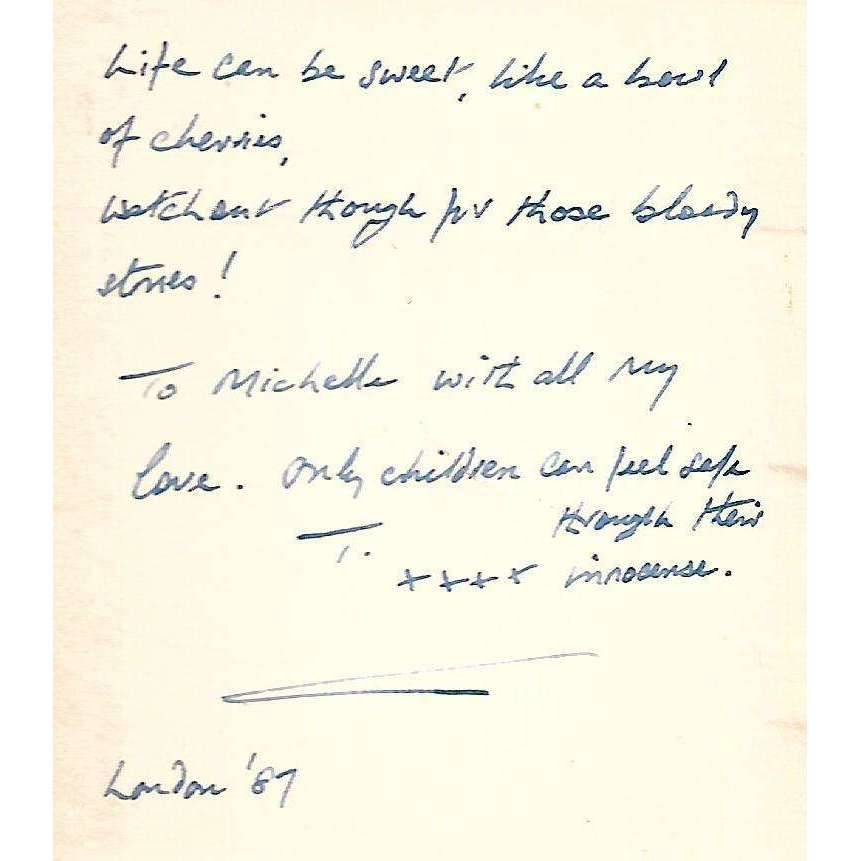 Life can be sweet, like a bowl
of cherries,
watch out though for those bloody
stones!
To Michelle with all my
love. Only children can feel safe
through their
T.
xxxx innocense.
London '87